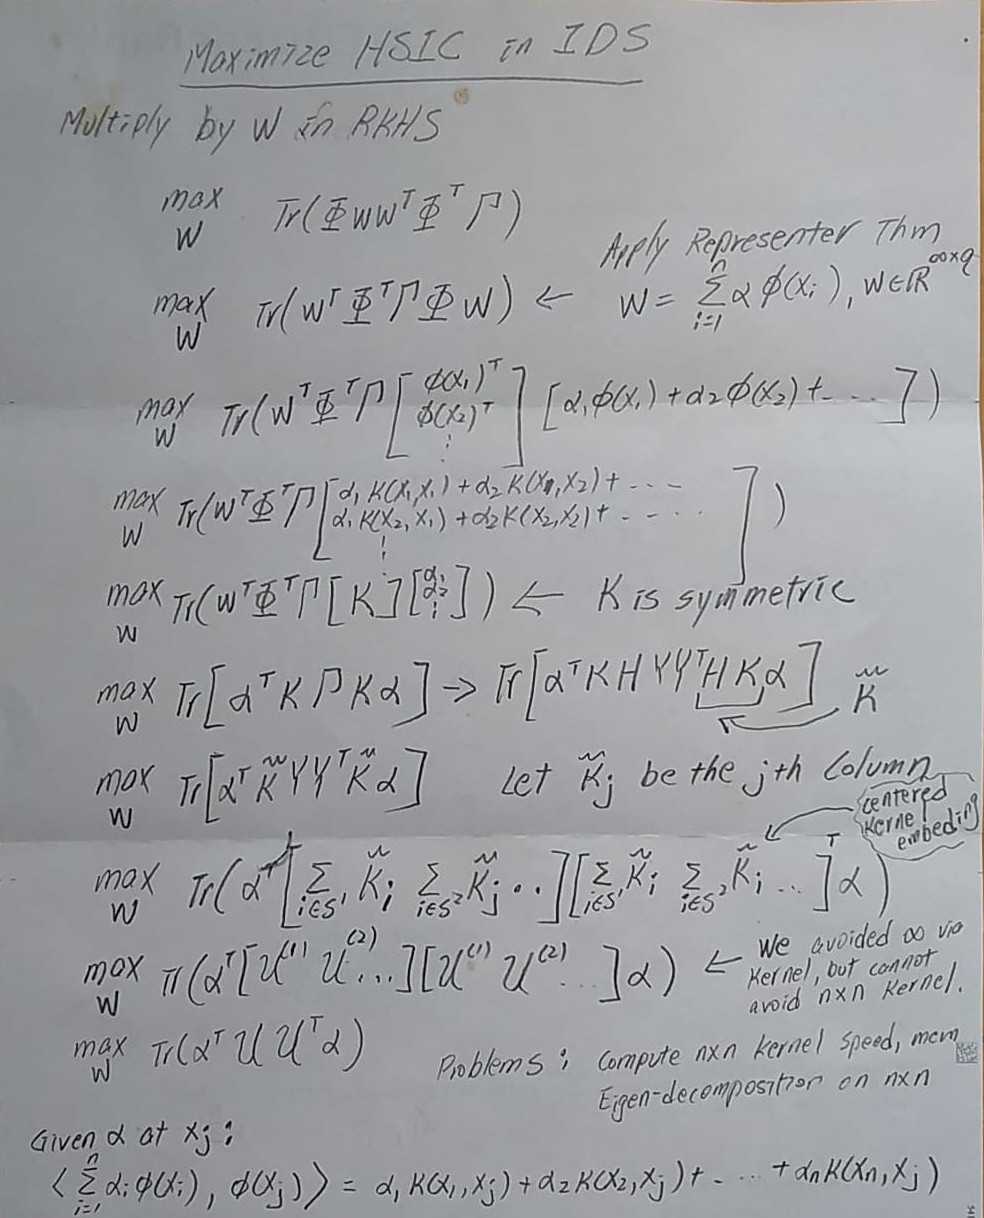 Maximize HSIC in IDS
Multiply by W in RKHS
max W Tr(Φ W Wᵀ Φᵀ Γ)
Apply Representer Thm
max W Tr(Wᵀ Φᵀ Γ Φ W) ← W = Σᵢ₌₁ⁿ α ϕ(xᵢ), W ∈ ℝ^{∞×q}
max W Tr(Wᵀ Φᵀ Γ [ϕ(x₁)ᵀ ϕ(x₂)ᵀ ⋮] [α₁ϕ(x₁) + α₂ϕ(x₂) + - ...])
max W Tr(Wᵀ Φᵀ Γ [α₁ K(x₁,x₁) + α₂ K(x₁,x₂) + - - - -
α₁ K(x₂,x₁) + α₂ K(x₂,x₂) + - - - - ⋮ ])
max W Tr(Wᵀ Φᵀ Γ [K] [α₁ α₂ ⋮]) ← K is symmetric
max W Tr[αᵀ K Γ K α] → Tr[αᵀ K H Y Yᵀ H K α] K̃
max W Tr[αᵀ K̃ Y Yᵀ K̃ α] Let K̃ⱼ be the jth Column
centered
Kerne
embeding
max W Tr(αᵀ [Σ_{i∈S¹} K̃ᵢ Σ_{i∈S²} K̃ⱼ ..] [Σ_{i∈S¹} K̃ᵢ Σ_{i∈S²} K̃ᵢ ...]ᵀ α)
max W Tr(αᵀ [𝒰⁽¹⁾ 𝒰⁽²⁾ ...] [𝒰⁽¹⁾ 𝒰⁽²⁾ ...] α) ← We avoided ∞ via
Kernel, but cannot
avoid n×n Kernel.
max W Tr(αᵀ 𝒰 𝒰ᵀ α)
Problems: Compute n×n kernel speed, mem
Eigen-decomposition on n×n
Given α at xⱼ:
⟨Σᵢ₌₁ⁿ αᵢ ϕ(xᵢ), ϕ(xⱼ)⟩ = α₁ K(x₁,xⱼ) + α₂ K(x₂,xⱼ) + - ... + αₙ K(xₙ,xⱼ)